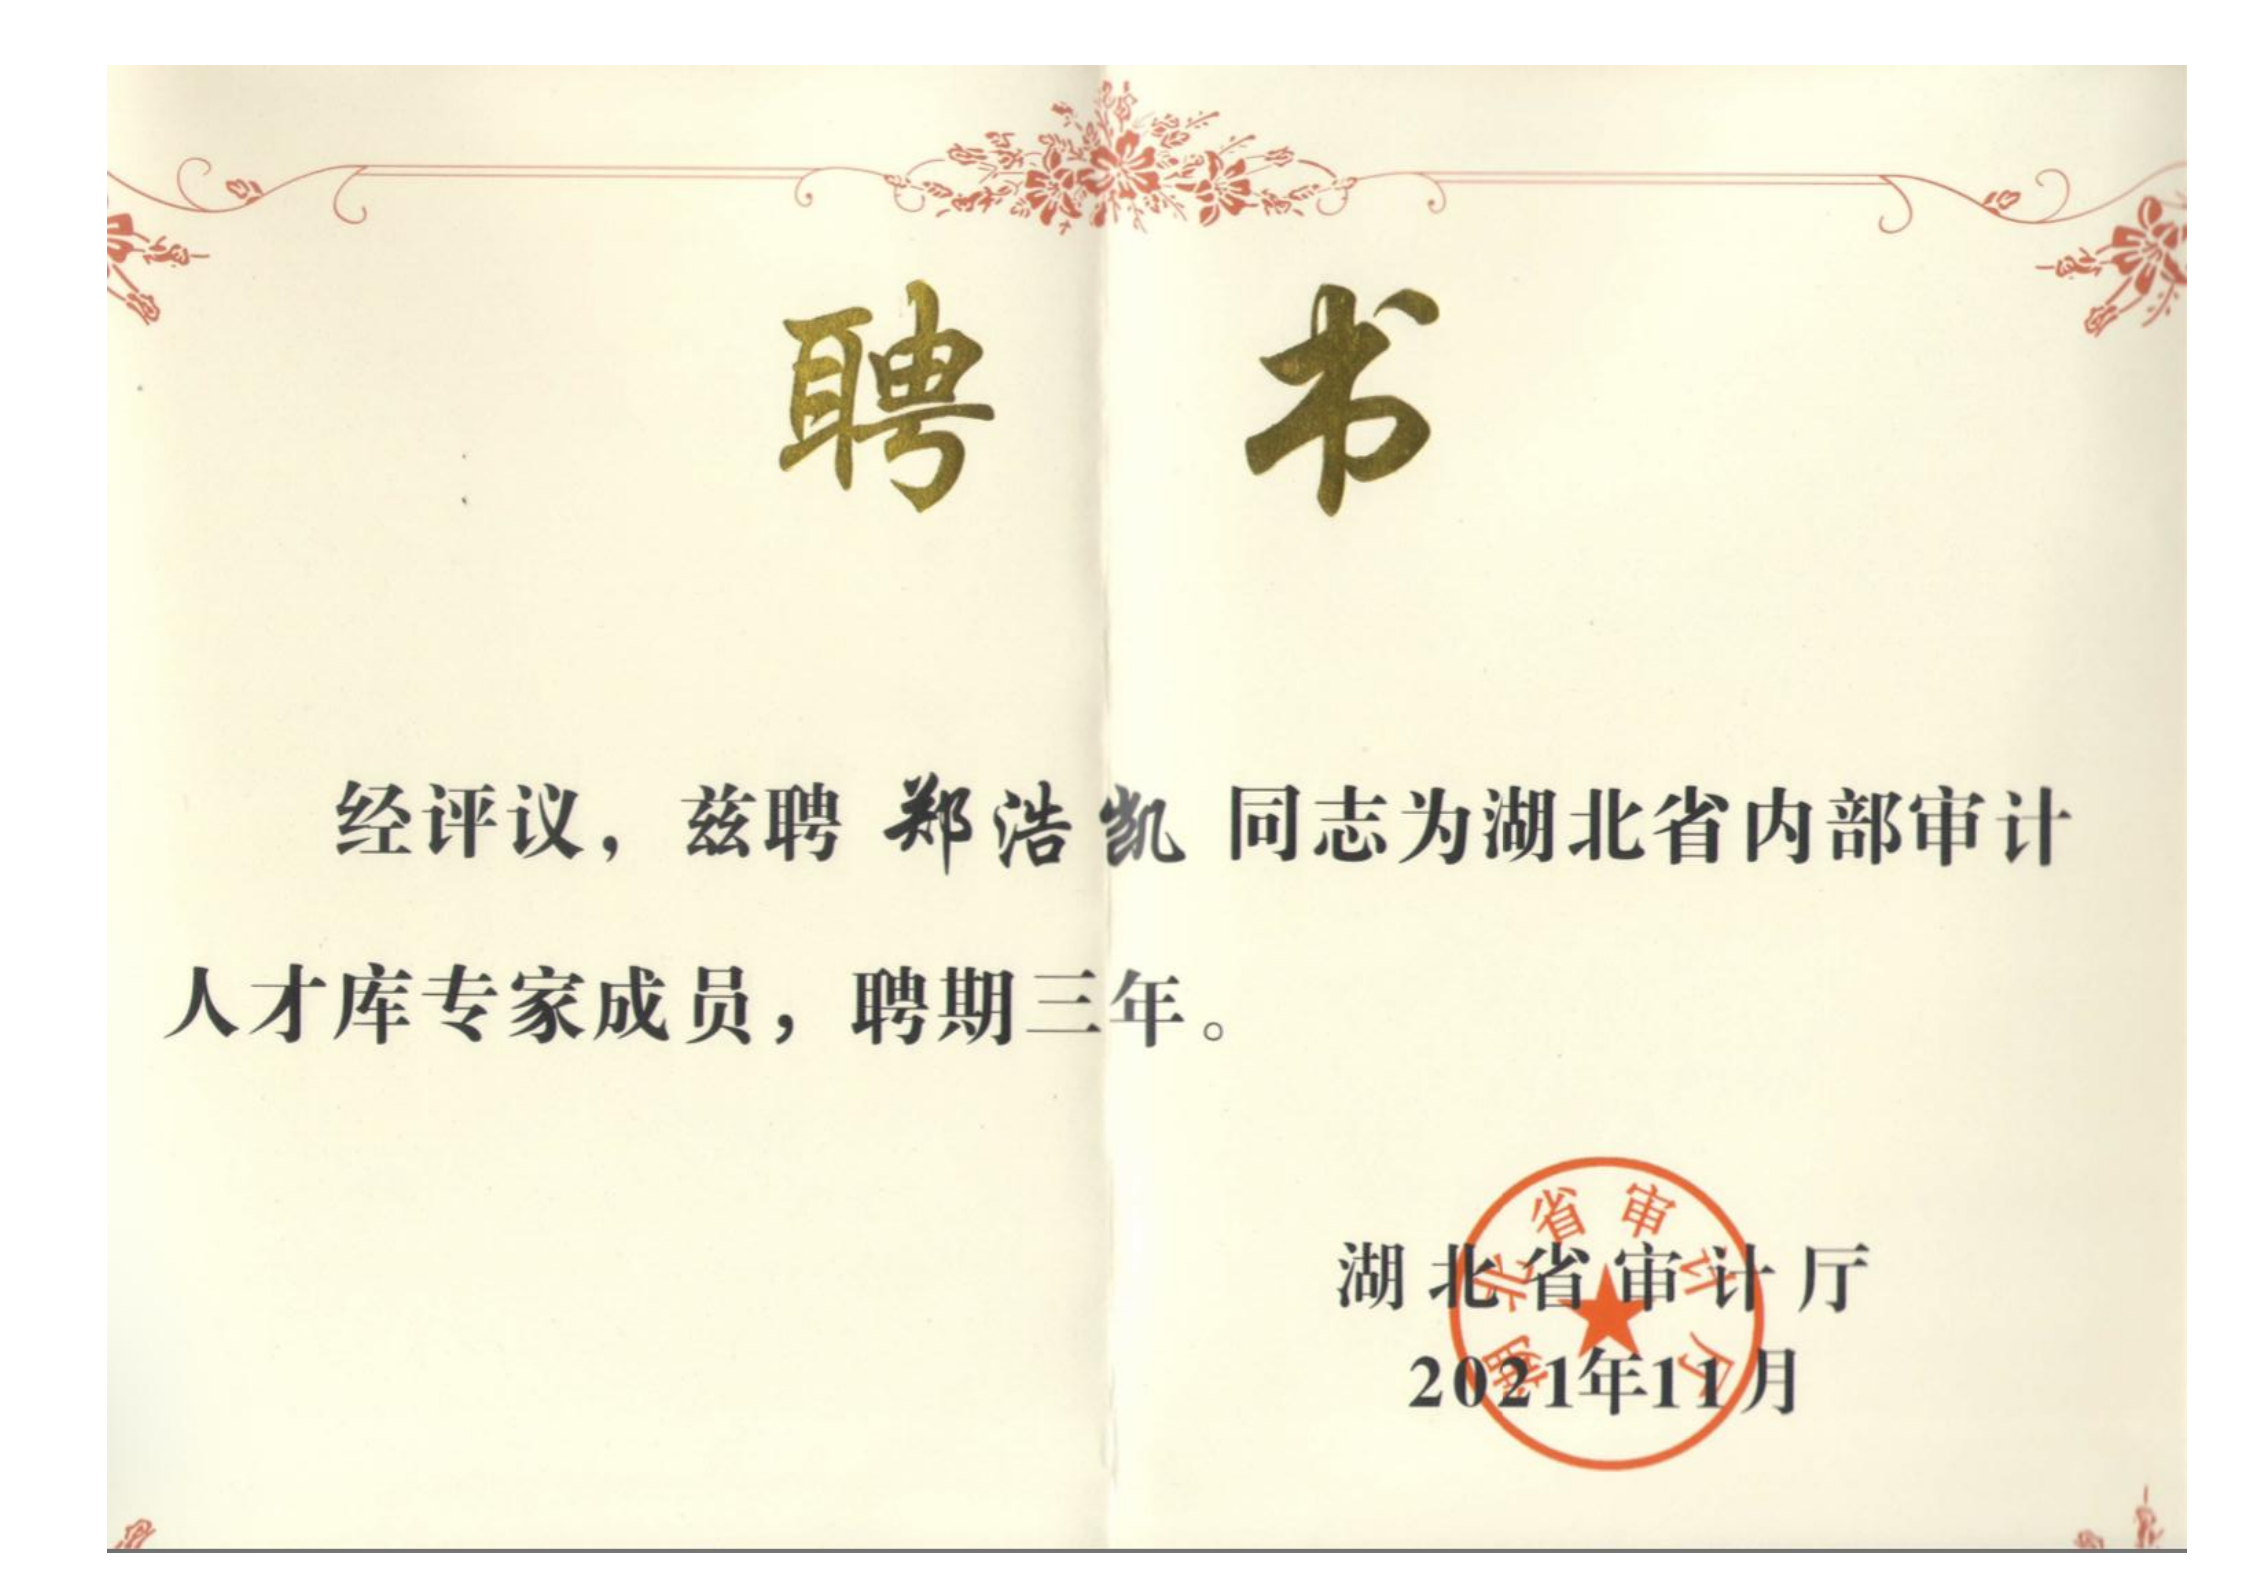 聘 书
经评议，兹聘 郑浩凯 同志为湖北省内部审计
人才库专家成员，聘期三年。
湖北省审计厅
湖北省审计厅
2021年11月